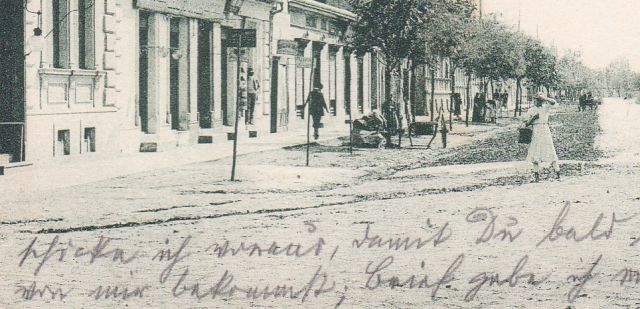 schicke ich voraus, damit Du bald
von mir bekommst; Brief gebe ich